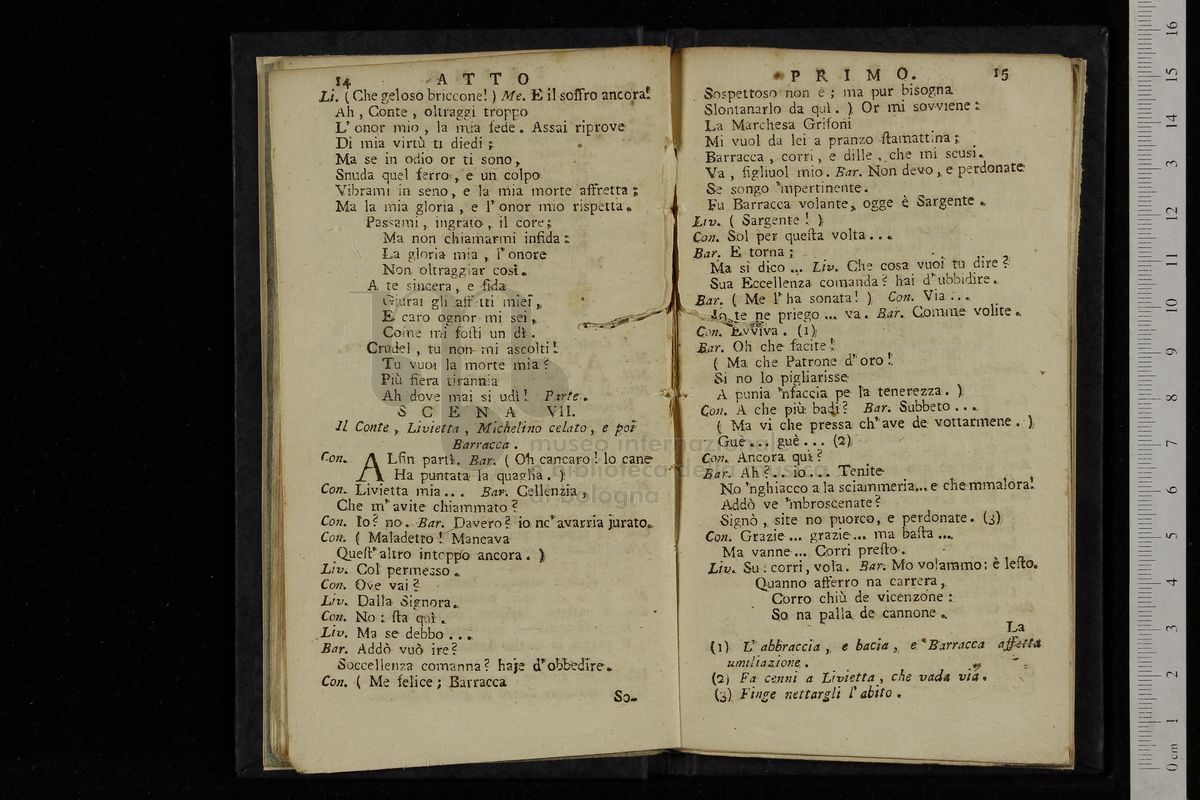 14 ATTO
Li. (Che geloso briccone!) Me. E il soffro ancora!
Ah, Conte, oltraggi troppo
L'onor mio, la mia fede. Assai riprove
Di mia virtù ti diedi;
Ma se in odio or ti sono,
Snuda quel ferro, e un colpo
Vibrami in seno, e la mia morte affretta;
Ma la mia gloria, e l'onor mio rispetta.
Passami, ingrato, il core;
Ma non chiamarmi infida:
La gloria mia, l'onore
Non oltraggiar così.
A te sincera, e fida
Giurai gli affetti miei,
E caro ognor mi sei,
Come mi fosti un dì.
Crudel, tu non mi ascolti!
Tu vuoi la morte mia?
Più fiera tirannia
Ah dove mai si udì! Parte.
SCENA VII.
Il Conte, Livietta, Michelino celato, e poi
Barracca.
Con. ALfin partì. Bar. (Oh cancaro! lo cane
Ha puntata la quaglia.)
Con. Livietta mia... Bar. Cellenzia,
Che m'avite chiammato?
Con. Io? no. Bar. Davero? io nc'avarria jurato.
Con. (Maladetto! Mancava
Quest'altro intoppo ancora.)
Liv. Col permesso.
Con. Ove vai?
Liv. Dalla Signora.
Con. No: sta quì.
Liv. Ma se debbo...
Bar. Addò vuò ire?
Soccellenza comanna? haje d'obbedire.
Con. (Me felice; Barracca
So-
PRIMO. 15
Sospettoso non è; ma pur bisogna
Slontanarlo da quì.) Or mi sovviene:
La Marchesa Grifoni
Mi vuol da lei a pranzo stamattina;
Barracca, corri, e dille, che mi scusi.
Va, figliuol mio. Bar. Non devo, e perdonate
Se songo 'mpertinente.
Fu Barracca volante, ogge è Sargente.
Liv. (Sargente!)
Con. Sol per questa volta...
Bar. E torna;
Ma si dico... Liv. Che cosa vuoi tu dire?
Sua Eccellenza comanda? hai d'ubbidire.
Bar. (Me l'ha sonata!) Con. Via...
Io te ne priego... va. Bar. Comme volite.
Con. Evviva. (1)
Bar. Oh che facite!
(Ma che Patrone d'oro!
Si no lo pigliarisse
A punia 'nfaccia pe la tenerezza.)
Con. A che più badi? Bar. Subbeto...
(Ma vi che pressa ch'ave de vottarmene.)
Guè... guè... (2)
Con. Ancora quì?
Bar. Ah?.. io... Tenite
No 'nghiacco a la sciammeria... e che mmalora!
Addò ve 'mbroscenate?
Signò, site no puorco, e perdonate. (3)
Con. Grazie... grazie... ma basta...
Ma vanne... Corri presto.
Liv. Su: corri, vola. Bar. Mo volammo: è lesto.
Quanno afferro na carrera,
Corro chiù de vicenzone:
So na palla de cannone.
La
(1) L'abbraccia, e bacia, e Barracca affetta
umiliazione.
(2) Fa cenni a Livietta, che vada via.
(3) Finge nettargli l'abito.
museo internazionale
e biblioteca della musica
di bologna
0 cm 1 2 3 4 5 6 7 8 9 10 11 12 13 14 15 16